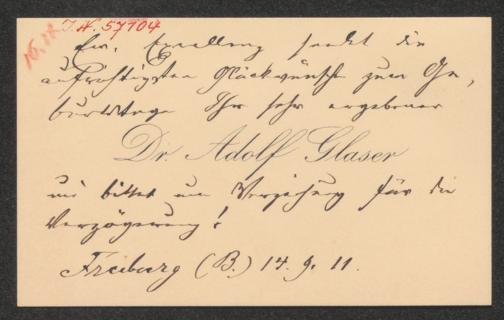 I. N. 57104
Ew. Exzellenz sendet die
aufrichtigsten Glückwünsche zum Ge-
burtstage Ihr sehr ergebener
Dr. Adolf Glaser
und bittet um Verzeihung für die
Verzögerung!
Freiburg (B.) 14. 9. 11.